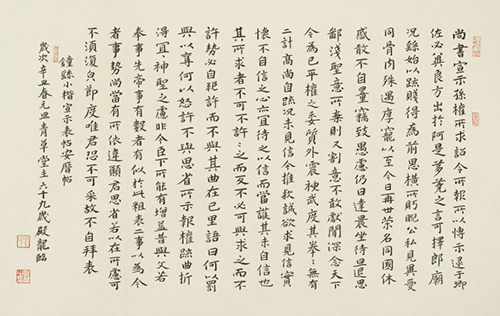 尚書宣示孫權所求詔令所報所以博示逮于卿
佐必冀良方出於阿是芻蕘之言可擇郎廟
況繇始以疏賤得為前恩橫所盻睨公私見異愛
同骨肉殊遇厚寵以至今日再世榮名同國休
慼敢不自量竊致愚慮仍日達晨坐待旦退思
鄙淺聖意所棄則又割意不敢獻聞深念天下
今為已平權之委質外震神武度其拳々無有
二計高尚自疏況未見信今推款誠欲求見信實
懷不自信之心亦宜待之以信而當護其未自信也
其所求者不可不許々之而反不必可與求之而不
許勢必自絕許而不與其曲在己里語曰何以罰
與以奪何以怒許不與思省所示報權疏曲折
得宜神聖之慮非今臣下所能有增益昔與文若
奉事先帝事有數者有似於此粗表二事以為今
者事勢尚當有所依違願君思省若以在所慮可
不須復白節度唯君恐不可采故不自拜表
鍾繇小楷宣示表帖安曆帖
歲次辛丑春元旦青草堂主六十九歲殿龍臨